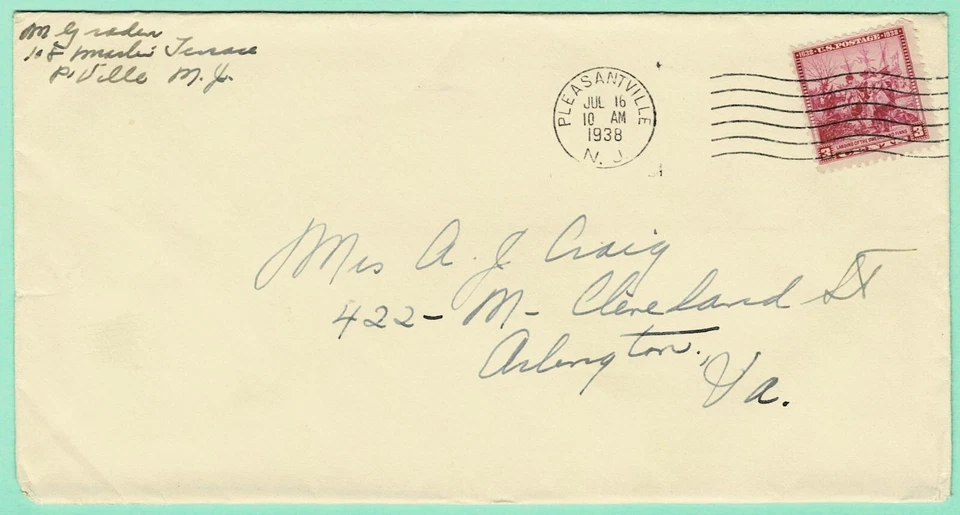 M Grader
108 Terrace
P. Ville N. J.
PLEASANTVILLE
JUL 16
10 AM
1938
N. J.
1638 - U.S. POSTAGE - 1938
3 LANDING OF THE 3
Mrs A. J. Craig
422 - N - Cleveland St
Arlington,
Va.